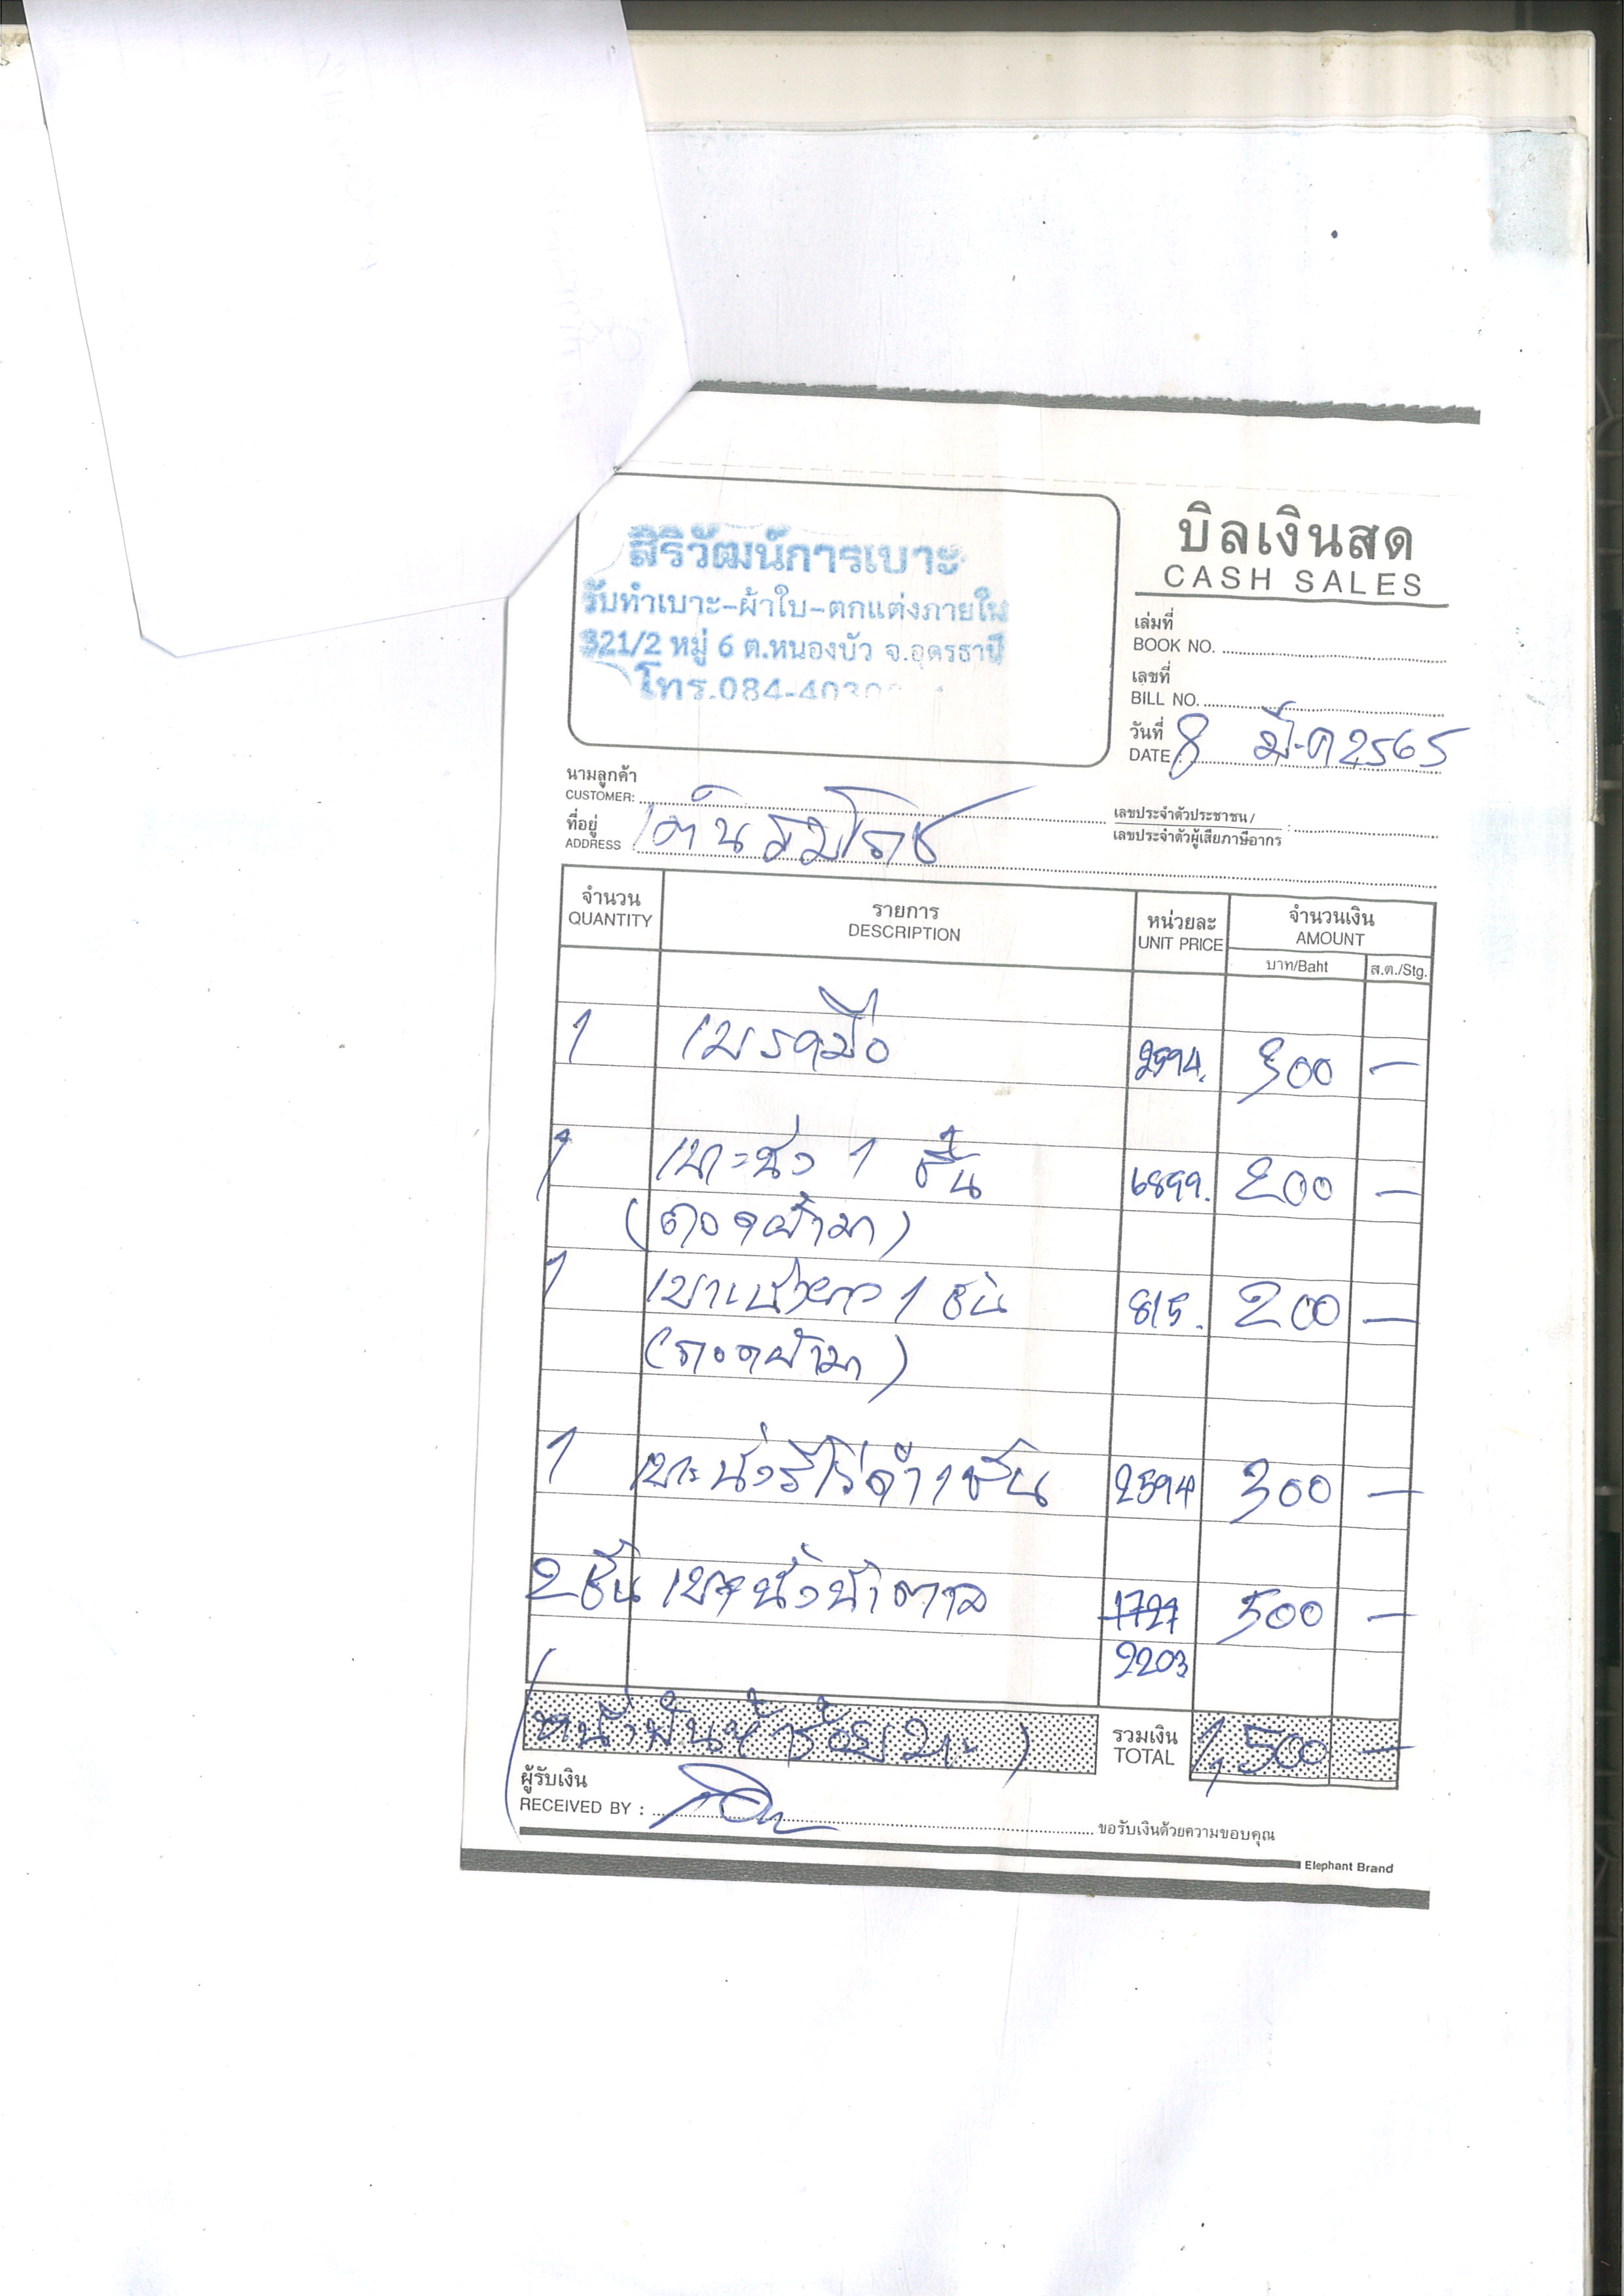 สิริวัฒน์การเบาะ
รับทำเบาะ-ผ้าใบ-ตกแต่งภายใน
321/2 หมู่ 6 ต.หนองบัว จ.อุดรธานี
โทร.084-4030
บิลเงินสด
CASH SALES
เล่มที่
BOOK NO.
เลขที่
BILL NO.
วันที่
DATE : 8 มี.ค 2565
นามลูกค้า
CUSTOMER:
ที่อยู่
ADDRESS :
เลขประจำตัวประชาชน /
เลขประจำตัวผู้เสียภาษีอากร :
จำนวน QUANTITY รายการ DESCRIPTION หน่วยละ UNIT PRICE จำนวนเงิน AMOUNT
บาท/Baht ส.ต./Stg.
1 เบรคมือ 2594. 300 —
1 เบาะนั่ง 1 ชิ้น 6899. 200 —
(ถอดผ้ามา)
1 1 ชิ้น 815. 200 —
(ถอดผ้ามา)
1 เบาะนั่งรีโว่ดำ 1 ชิ้น 2594 300 —
2 ชิ้น เบาะนั่งน้ำตาล 1727 500 —
2203
(หนึ่งพันห้าร้อย) รวมเงิน TOTAL 1,500 —
ผู้รับเงิน
RECEIVED BY : ขอรับเงินด้วยความขอบคุณ
Elephant Brand